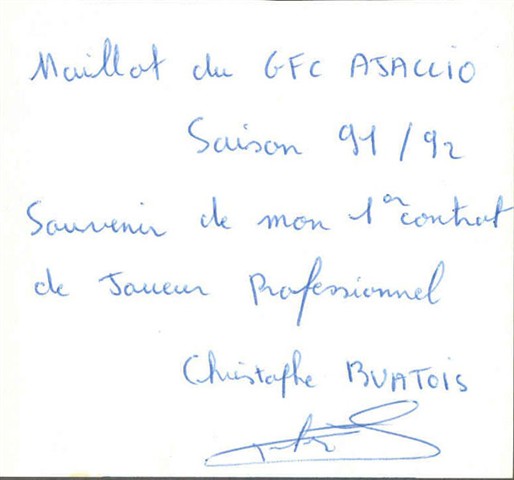 Maillot du GFC AJACCIO
Saison 91/92
Souvenir de mon 1er contrat
de Joueur Professionnel
Christophe BUATOIS